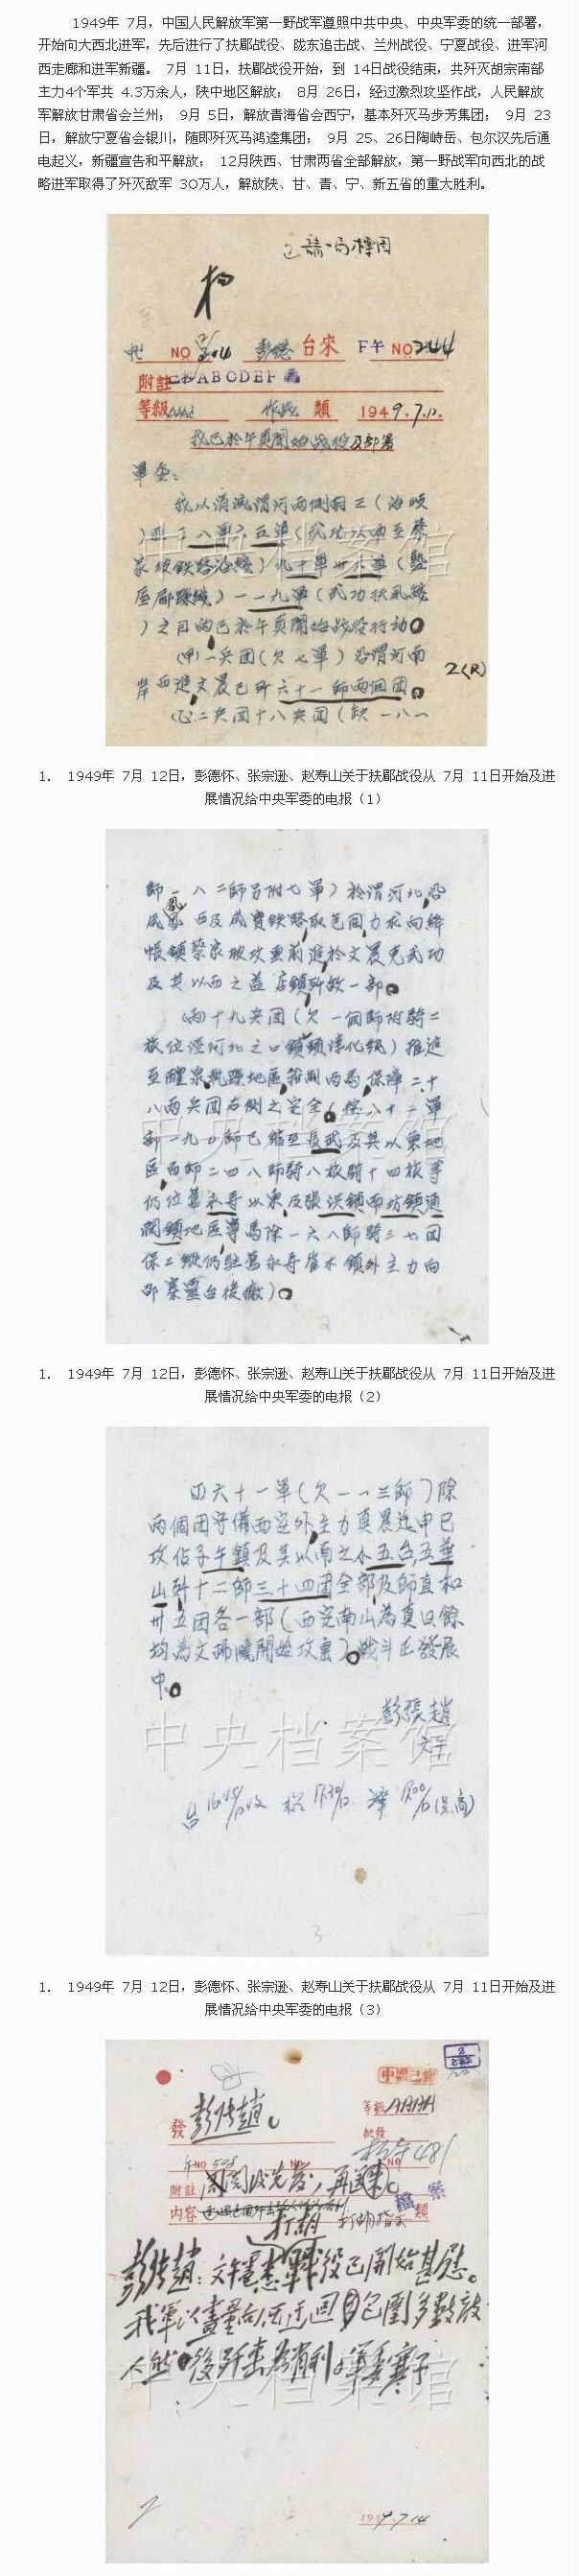 1949年 7月，中国人民解放军第一野战军遵照中共中央、中央军委的统一部署，
开始向大西北进军，先后进行了扶郿战役、陇东追击战、兰州战役、宁夏战役、进军河
西走廊和进军新疆。 7月 11日，扶郿战役开始，到 14日战役结束，共歼灭胡宗南部
主力4个军共 4.3万余人，陕中地区解放； 8月 26日，经过激烈攻坚作战，人民解放
军解放甘肃省会兰州； 9月 5日，解放青海省会西宁，基本歼灭马步芳集团； 9月 23
日，解放宁夏省会银川，随即歼灭马鸿逵集团； 9月 25、26日陶峙岳、包尔汉先后通
电起义，新疆宣告和平解放； 12月陕西、甘肃两省全部解放，第一野战军向西北的战
略进军取得了歼灭敌军 30万人，解放陕、甘、青、宁、新五省的重大胜利。
NO 彭德 台來 F午 NO244
附註 ABCDEF
等級 作战 類 1949.7.12.
我已於午真開始战役及部署
軍委：
我以消滅渭河兩側胡三（治岐
八軍六五軍（武功以西至蔡
家坡鉄路沿綫）九十軍卅八軍（盩
厔郿縣綫）一一九軍（武功扶風綫
）之目的已於午真開始战役行动。
（甲）一兵团（欠七軍）沿渭河南
岸西進文晨已歼六十一師兩個团。
（乙）二兵团十八兵团（缺一八一
2(R)
中央档案馆
1. 1949年 7月 12日，彭德怀、张宗逊、赵寿山关于扶郿战役从 7月 11日开始及进
展情况给中央军委的电报（1）
師一八二師另附七軍）於渭河北沿
咸 西及咸寶铁路取包围力求向絳
帳鎮蔡家坡攻击前進於文晨克武功
及其以西之益店鎮歼敵一部。
（丙）十九兵团（欠一個師附騎二
旅位涇河北之口鎮頭淳化綫）推進
至醴泉乾縣地區箝制兩馬保障二十
八兩兵团右側之安全（按八十二軍
一九〇師已縮至長武及其以東地
區 師二四八師騎八旅騎十四旅等
仍位舊永寿以東及張洪鎮南坊鎮通
潤鎮地區寧馬除一六八師騎三七团
保二縱仍駐舊永寿崔木鎮外主力向
邵寨靈台後撤）。
2
中央档案馆
1. 1949年 7月 12日，彭德怀、张宗逊、赵寿山关于扶郿战役从 7月 11日开始及进
展情况给中央军委的电报（2）
（四）六十一軍（欠一一三師）除
兩個团守備西安外主力真晨迄申已
攻佔子午鎮及其以南之小五台五華
山歼十二師三十四团全部及師直和
卅五团各一部（西安南山為真日餘
均為文拂曉開始攻击）。战斗正發展
中。
彭張趙
文午
中央档案馆
3
1. 1949年 7月 12日，彭德怀、张宗逊、赵寿山关于扶郿战役从 7月 11日开始及进
展情况给中央军委的电报（3）
發 彭张趙。
等級 AAAA
批發
NO 481
附註
内容 打胡 類
彭张趙：文午電悉。战役已開始甚慰。
我軍以盡量向西迂迴包圍多數敵
人然後歼击為有利。軍委寒子
中央档案馆
1949.7.14